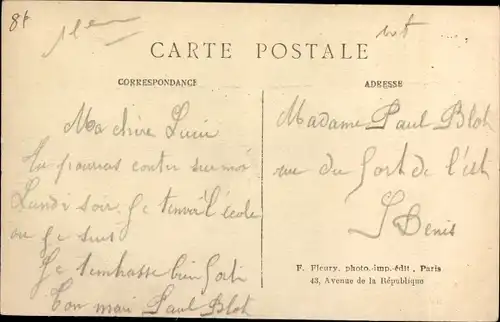 8f
CARTE POSTALE
CORRESPONDANCE
Ma chère Lucie
Tu pourras conter sur moi
Lundi soir. Je l'école
ou je suis
Je t'embrasse bien fort
Ton mari Paul Blot
ADRESSE
Madame Paul Blot
rue du fort de l'est
St Denis
F. Fleury, photo.-imp.-édit., Paris
43, Avenue de la République